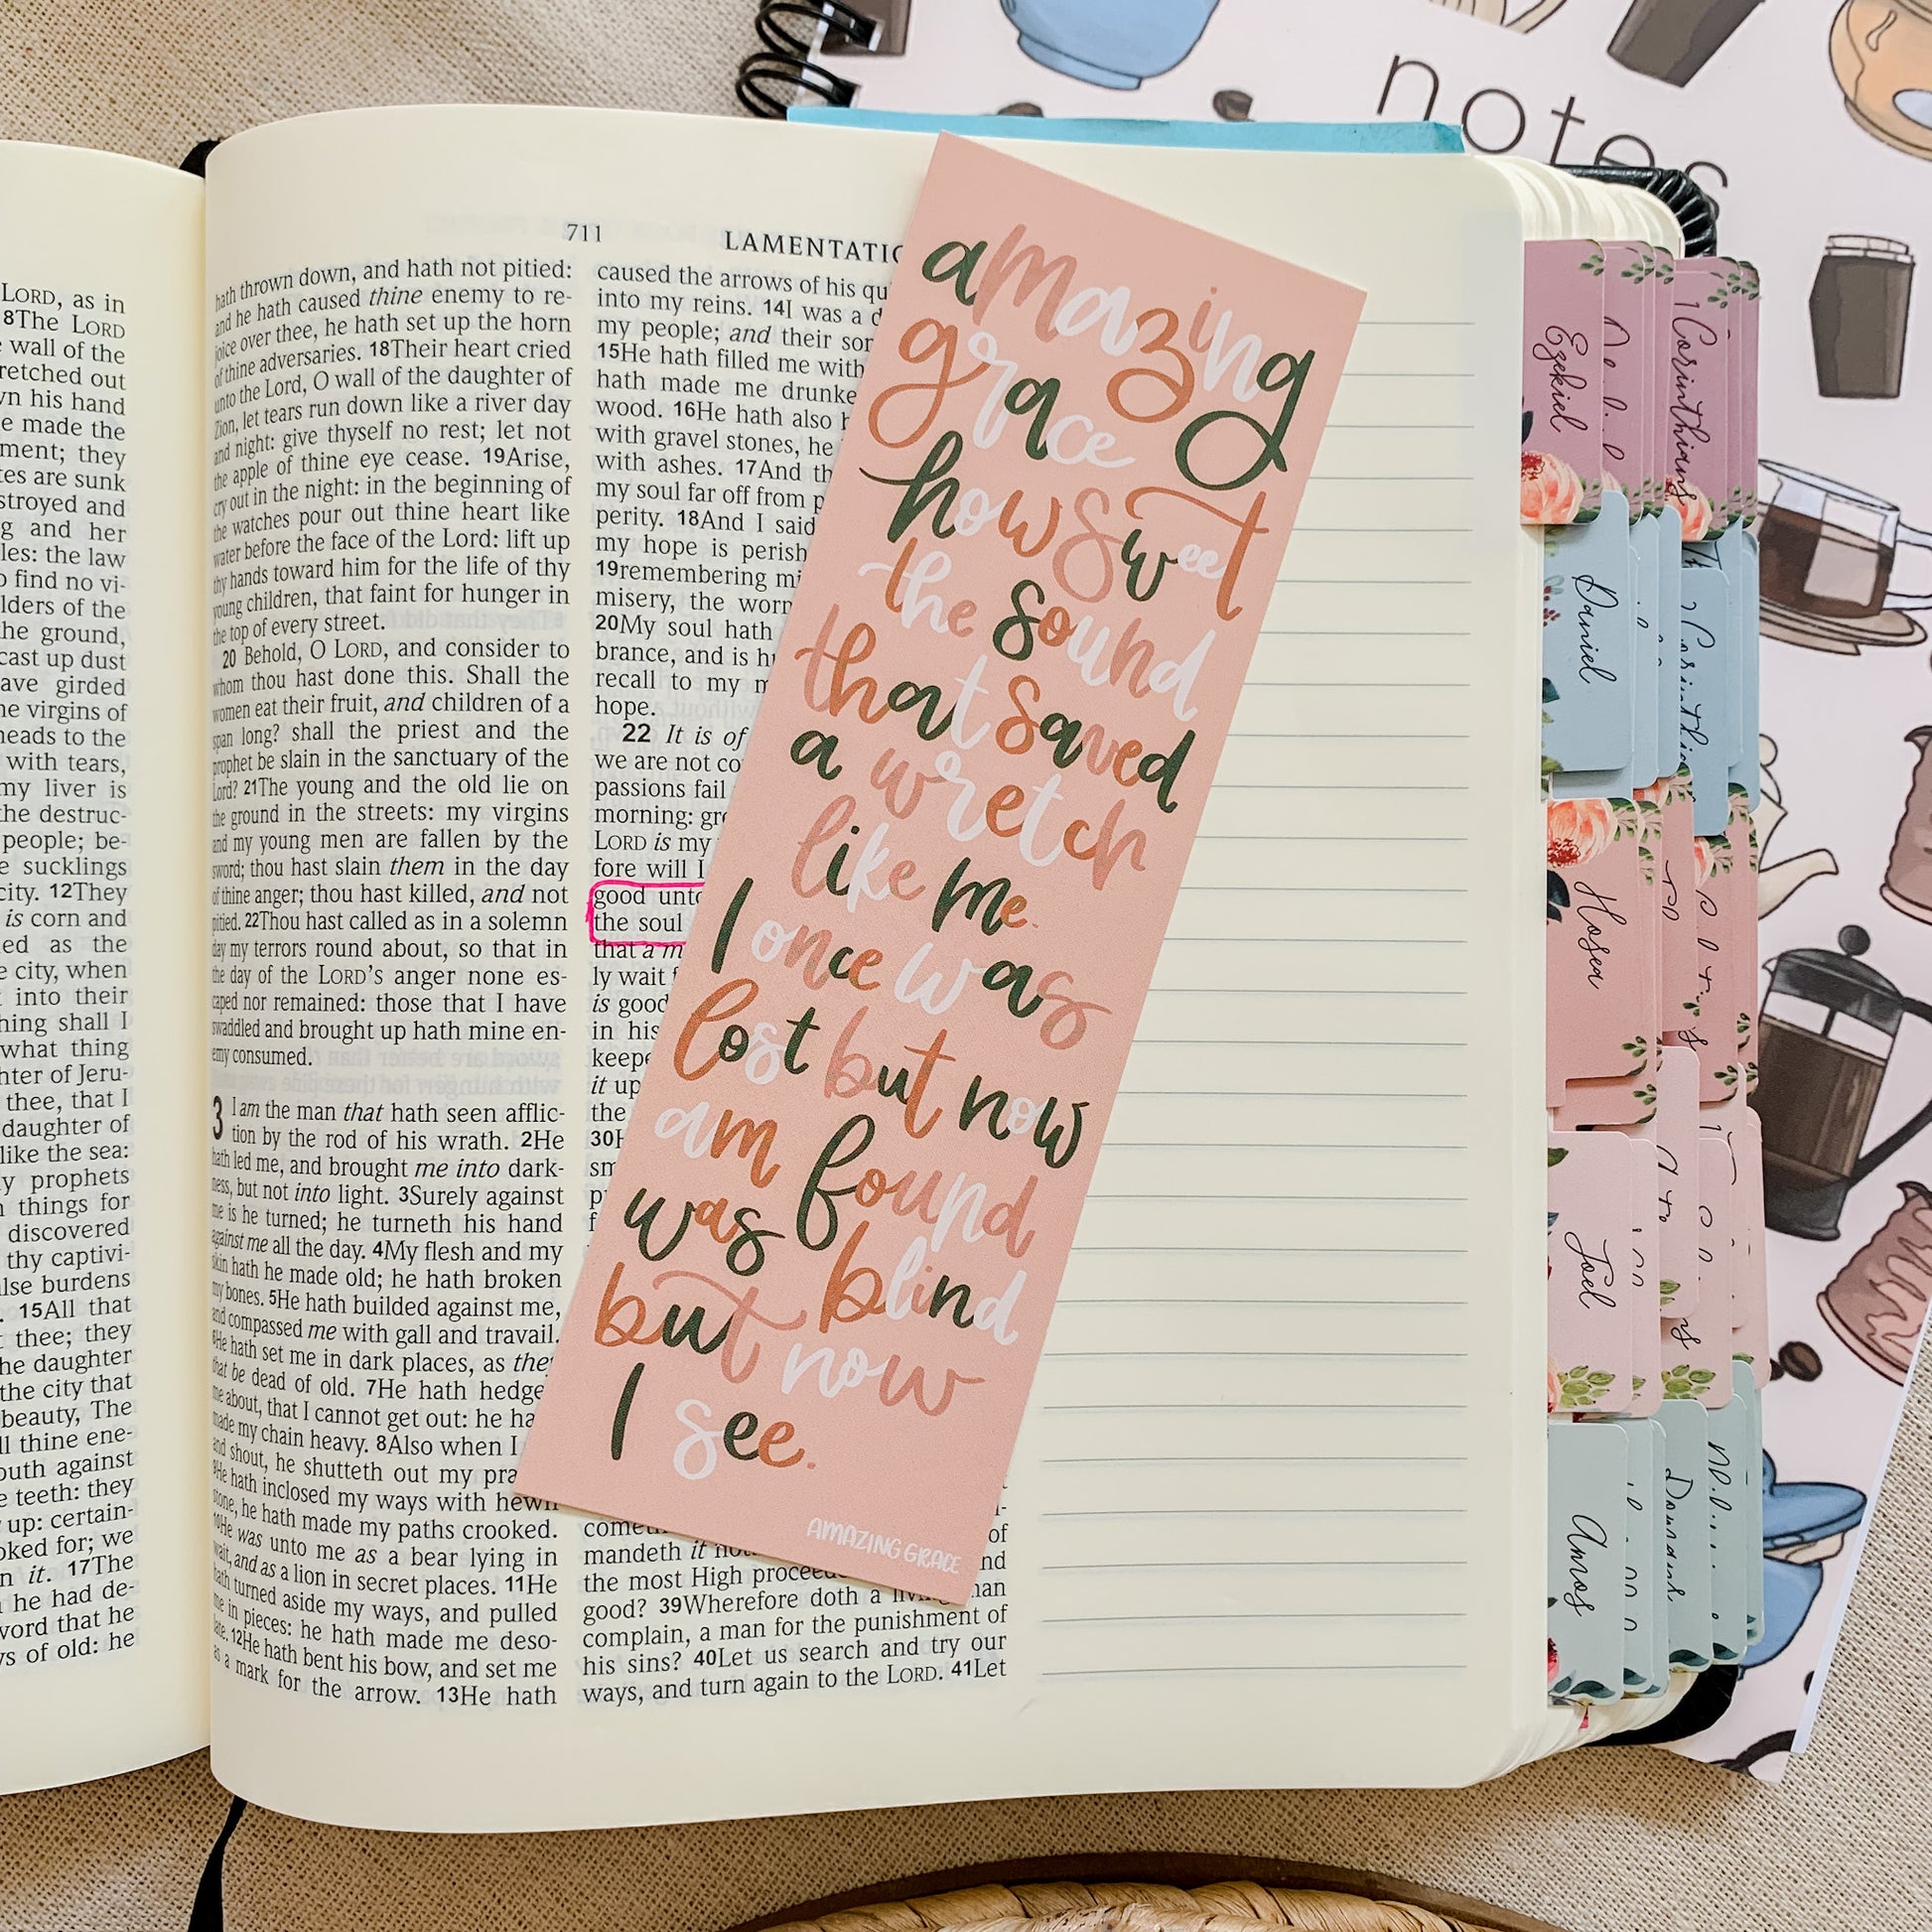 notes
LORD, as in
8The LORD
wall of the
retched out
his hand
e made the
ment; they
tes are sunk
stroyed and
g and her
les: the law
find no vi-
lders of the
he ground,
cast up dust
ave girded
he virgins of
heads to the
with tears,
my liver is
the destruc-
people; be-
e sucklings
city. 12They
is corn and
ed as the
e city, when
into their
hing shall I
what thing
hter of Jeru-
thee, that I
daughter of
like the sea:
y prophets
things for
discovered
thy captivi-
lse burdens
15All that
thee; they
he daughter
the city that
beauty, The
ll thine ene-
outh against
e teeth: they
up: certain-
oked for; we
n it. 17The
he had de-
word that he
ys of old: he
711 LAMENTATIO
hath thrown down, and hath not pitied:
and he hath caused thine enemy to re-
joice over thee, he hath set up the horn
of thine adversaries. 18Their heart cried
unto the Lord, O wall of the daughter of
Zion, let tears run down like a river day
and night: give thyself no rest; let not
the apple of thine eye cease. 19Arise,
cry out in the night: in the beginning of
the watches pour out thine heart like
water before the face of the Lord: lift up
thy hands toward him for the life of thy
young children, that faint for hunger in
the top of every street.
20 Behold, O LORD, and consider to
whom thou hast done this. Shall the
women eat their fruit, and children of a
span long? shall the priest and the
prophet be slain in the sanctuary of the
Lord? 21The young and the old lie on
the ground in the streets: my virgins
and my young men are fallen by the
sword; thou hast slain them in the day
of thine anger; thou hast killed, and not
pitied. 22Thou hast called as in a solemn
day my terrors round about, so that in
the day of the LORD'S anger none es-
caped nor remained: those that I have
swaddled and brought up hath mine en-
emy consumed.
3 I am the man that hath seen afflic-
tion by the rod of his wrath. 2He
hath led me, and brought me into dark-
ness, but not into light. 3Surely against
me is he turned; he turneth his hand
against me all the day. 4My flesh and my
skin hath he made old; he hath broken
my bones. 5He hath builded against me,
and compassed me with gall and travail.
6He hath set me in dark places, as they
that be dead of old. 7He hath hedge
me about, that I cannot get out: he ha
made my chain heavy. 8Also when I
and shout, he shutteth out my pra
9He hath inclosed my ways with hewn
stone, he hath made my paths crooked.
10He was unto me as a bear lying in
wait, and as a lion in secret places. 11He
hath turned aside my ways, and pulled
me in pieces: he hath made me deso-
late. 12He hath bent his bow, and set me
as a mark for the arrow. 13He hath
caused the arrows of his qu
into my reins. 14I was a d
my people; and their son
15He hath filled me with
hath made me drunke
wood. 16He hath also b
with gravel stones, he
with ashes. 17And th
my soul far off from p
perity. 18And I said
my hope is perish
19remembering mi
misery, the worm
20My soul hath
brance, and is hu
recall to my m
hope.
22 It is of
we are not co
passions fail
morning: gre
LORD is my
fore will I
good unto
the soul
that a m
ly wait f
is good
in his
keepe
it up
the
30H
sm
come
mandeth it not of
the most High proceed and
good? 39Wherefore doth a living man
complain, a man for the punishment of
his sins? 40Let us search and try our
ways, and turn again to the LORD. 41Let
amazing
grace
how sweet
the sound
that saved
a wretch
like me.
I once was
lost but now
am found
was blind
but now
I see.
AMAZING GRACE
Ezekiel
1 Corinthians
Daniel
2 Corinthians
Hosea
Joel
Amos